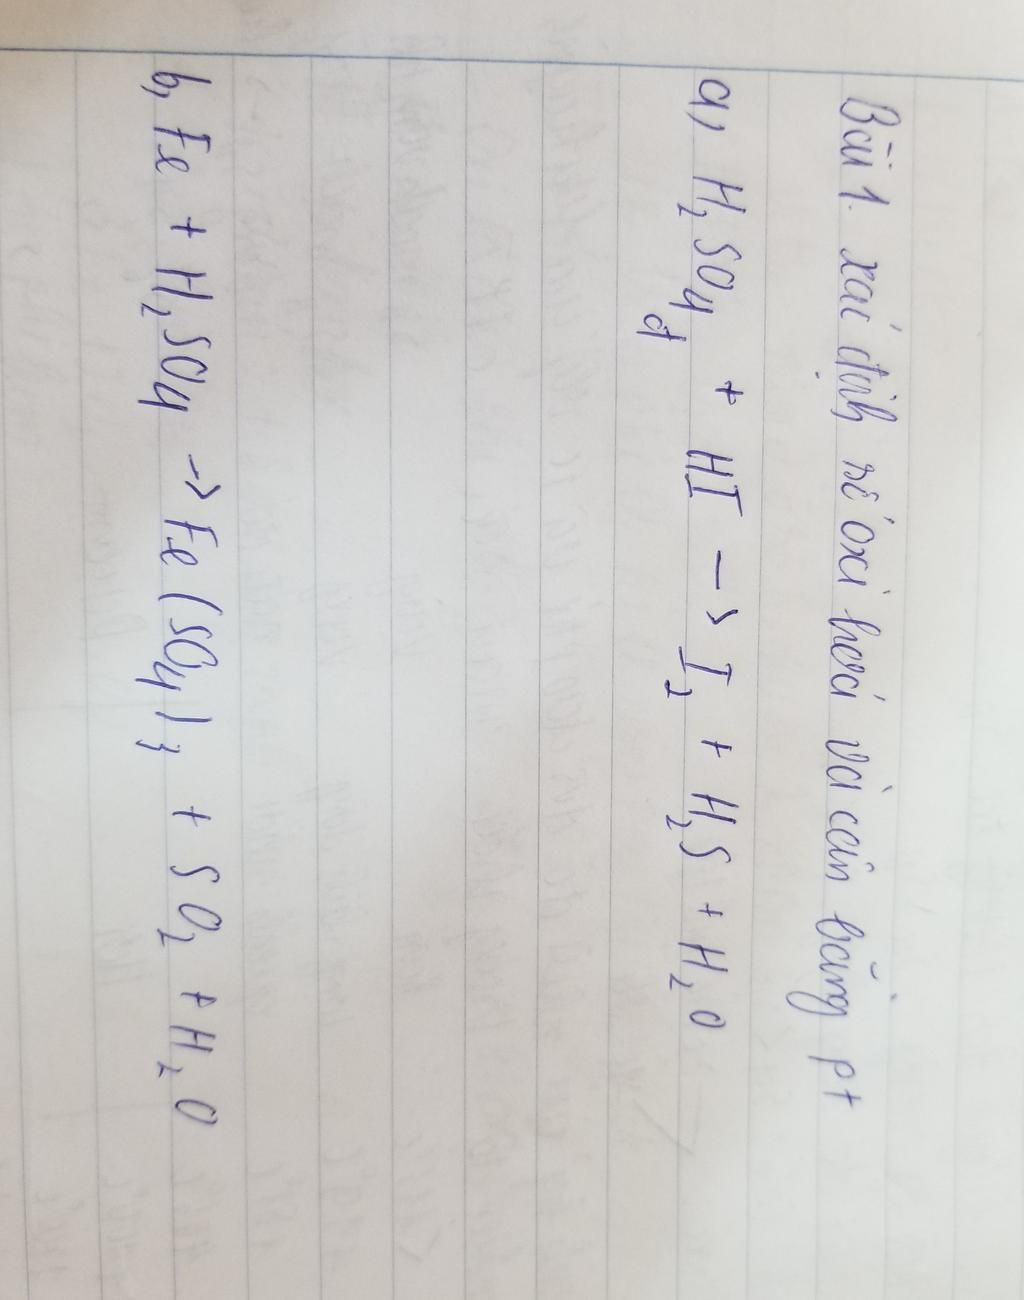 Bài 1. xác định số oxi hoá và cân bằng pt
a, H₂SO₄ đ + HI → I₂ + H₂S + H₂O
b, Fe + H₂SO₄ → Fe(SO₄)₃ + SO₂ + H₂O